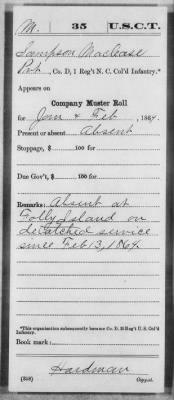 M. 35 U.S.C.T.
Sampson Maclease
Pvt., Co. D, 1 Reg't N. C. Col'd Infantry.*
Appears on
Company Muster Roll
for Jan & Feb, 1864.
Present or absent Absent
Stoppage, $ 100 for
Due Gov't, $ 100 for
Remarks: Absent at
Folly Island on
Detatched service
since Feb 13, 1864.
*This organization subsequently became Co. D, 35 Reg't U.S. Col'd
Infantry.
Book mark:
Hardman
(358) Copyist.